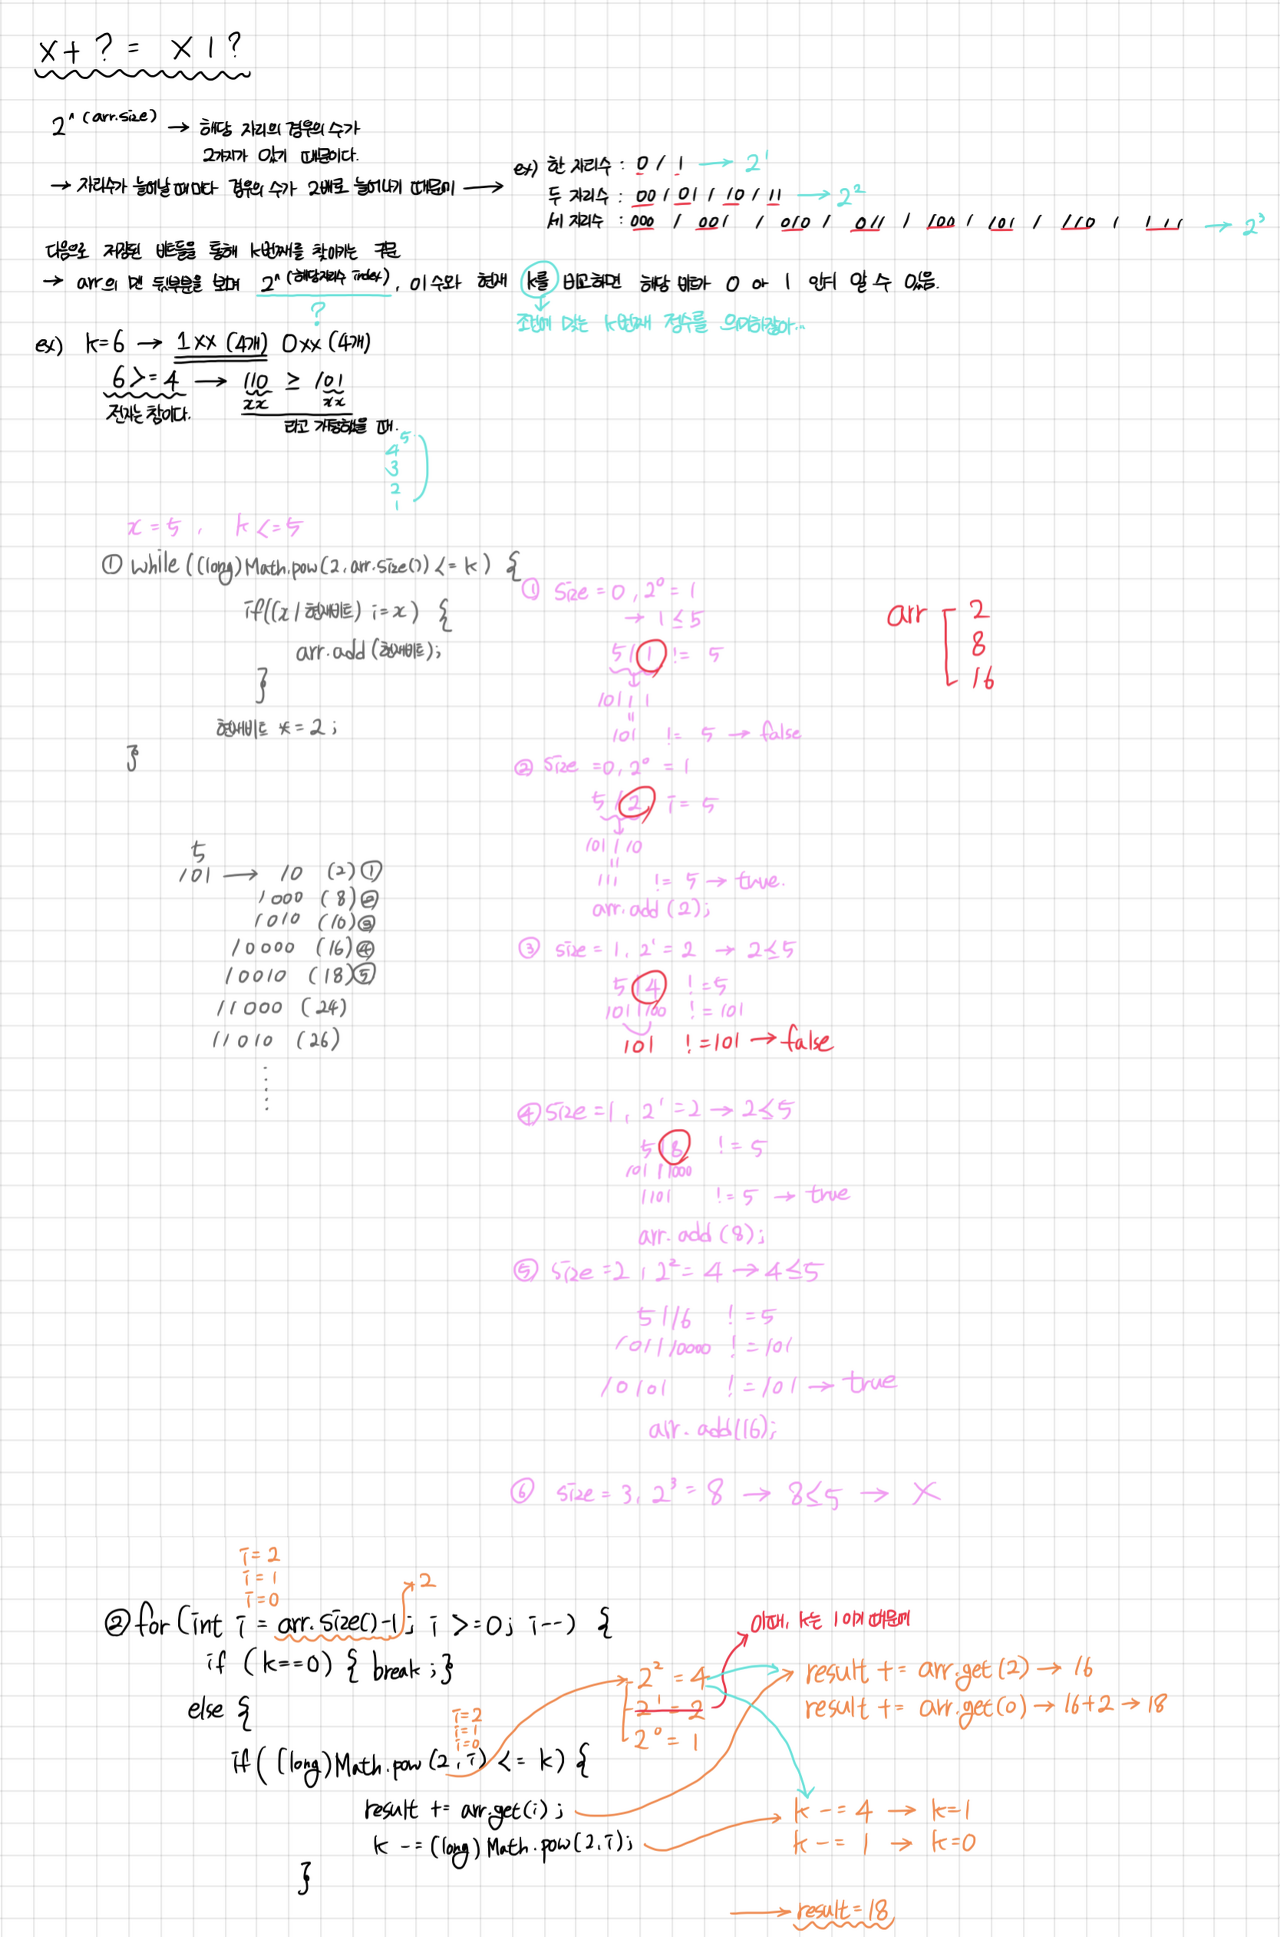 x + ? = x | ?
2^(arr.size) → 해당 자리의 경우의 수가
2가지가 있기 때문이다.
→ 자리수가 늘어날 때마다 경우의 수가 2배로 늘어나기 때문이 →
ex) 한 자리수 : 0 / 1 → 2¹
두 자리수 : 00 / 01 / 10 / 11 → 2²
세 자리수 : 000 / 001 / 010 / 011 / 100 / 101 / 110 / 111 → 2³
다음으로 저장된 비트들을 통해 k번째를 찾아가는 구문
→ arr의 맨 뒷부분을 보며 2^(해당자리수 index), 이 수와 현재 k를 비교하면 해당 비트가 0 아 1 인지 알 수 있음.
?
조건에 맞는 k번째 정수를 의미하잖아...
ex) k=6 → 1xx (4개) 0xx (4개)
6 >= 4 → 110 ≥ 101
xx xx
전자는 참이다.
라고 가정했을 때.
5
4
3
2
1
x = 5 , k <= 5
① while ((long)Math.pow(2, arr.size()) <= k) {
if((x | 현재비트) != x) {
arr.add(현재비트);
}
현재비트 *= 2;
}
① size = 0, 2⁰ = 1
→ 1 ≤ 5
5 | 1 != 5
101 | 1
=
101 != 5 → false
② size = 0, 2⁰ = 1
5 | 2 != 5
101 | 10
=
111 != 5 → true.
arr.add(2);
③ size = 1, 2¹ = 2 → 2 ≤ 5
5 | 4 != 5
101 | 100 != 101
101 != 101 → false
④ size = 1, 2¹ = 2 → 2 ≤ 5
5 | 8 != 5
101 | 1000
1101 != 5 → true
arr.add(8);
⑤ size = 2, 2² = 4 → 4 ≤ 5
5 | 16 != 5
101 | 10000 != 101
10101 != 101 → true
arr.add(16);
⑥ size = 3, 2³ = 8 → 8 ≤ 5 → X
arr
2
8
16
5
101 → 10 (2) ①
1000 (8) ②
1010 (10) ③
10000 (16) ④
10010 (18) ⑤
11000 (24)
11010 (26)
i = 2
i = 1
i = 0
2
② for (int i = arr.size()-1; i >= 0; i--) {
if (k==0) { break; }
else {
i = 2
i = 1
i = 0
if ((long)Math.pow(2, i) <= k) {
result += arr.get(i);
k -= (long)Math.pow(2, i);
}
이때, k는 1이기 때문에
2² = 4
2¹ = 2
2⁰ = 1
result += arr.get(2) → 16
result += arr.get(0) → 16+2 → 18
k -= 4 → k=1
k -= 1 → k=0
→ result = 18